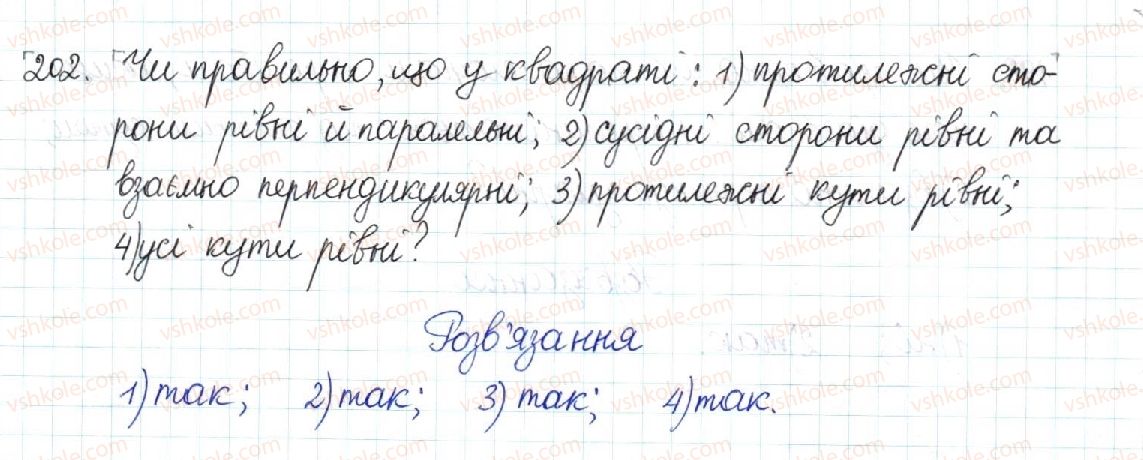 202. Чи правильно, що у квадраті: 1) протилежні сто-
рони рівні й паралельні; 2) сусідні сторони рівні та
взаємно перпендикулярні; 3) протилежні кути рівні;
4) усі кути рівні?
Розв'язання
1) так; 2) так; 3) так; 4) так.